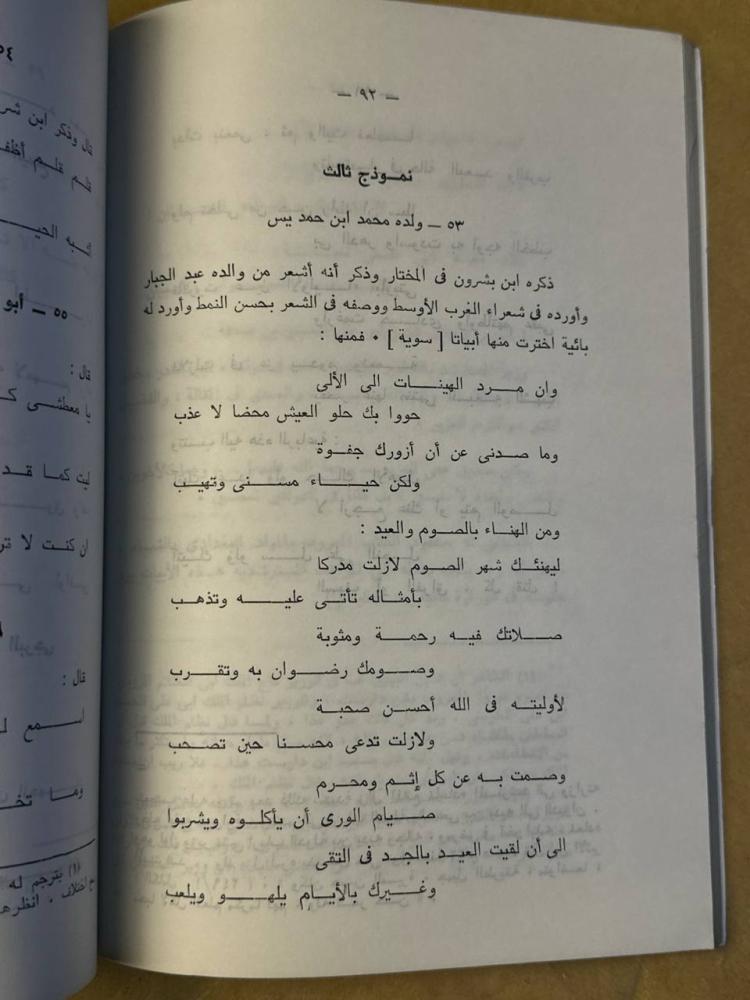 — ٩٢ —
نمــوذج ثالث
٥٣ — ولده محمد ابن حمد يس
ذكره ابن بشرون فى المختار وذكر أنه أشعر من والده عبد الجبار
وأورده فى شعراء الغرب الأوسط ووصفه فى الشعر بحسن النمط وأورد له
بائية اخترت منها أبياتا [ سوية ] ٠ فمنها :
وان مــرد الهينــات الى الألى
حووا بك حلو العيش محضا لا عذب
وما صدنى عن أن أزورك جفـوة
ولكن حيــاء مســنى وتهيـب
ومن الهناء بالصوم والعيد :
ليهنئــك شهر الصـوم لازلت مدركا
بأمثـاله تأتـى عليــه وتذهـب
صــلاتك فيــه رحمــة ومثوبة
وصـومك رضــوان به وتقـرب
لأوليتــه فى الله أحسـن صحبة
ولازلت تدعى محسـنا حين تصحب
وصمت به عن كل إثـم ومحـرم
صـيام الورى أن يأكلـوه ويشربوا
الى أن لقيت العيـد بالجـد فى التقى
وغـيرك بالأيـام يلهــو ويلعب
٥٤
قال وذكر ابن
قلم قلـم
شبه الحيـ
٥٥ — أبو
قال :
يا معطشـى
ليت كما قـد
ان كنت لا
قال :
اسـمع
وما
(١) يترجم له